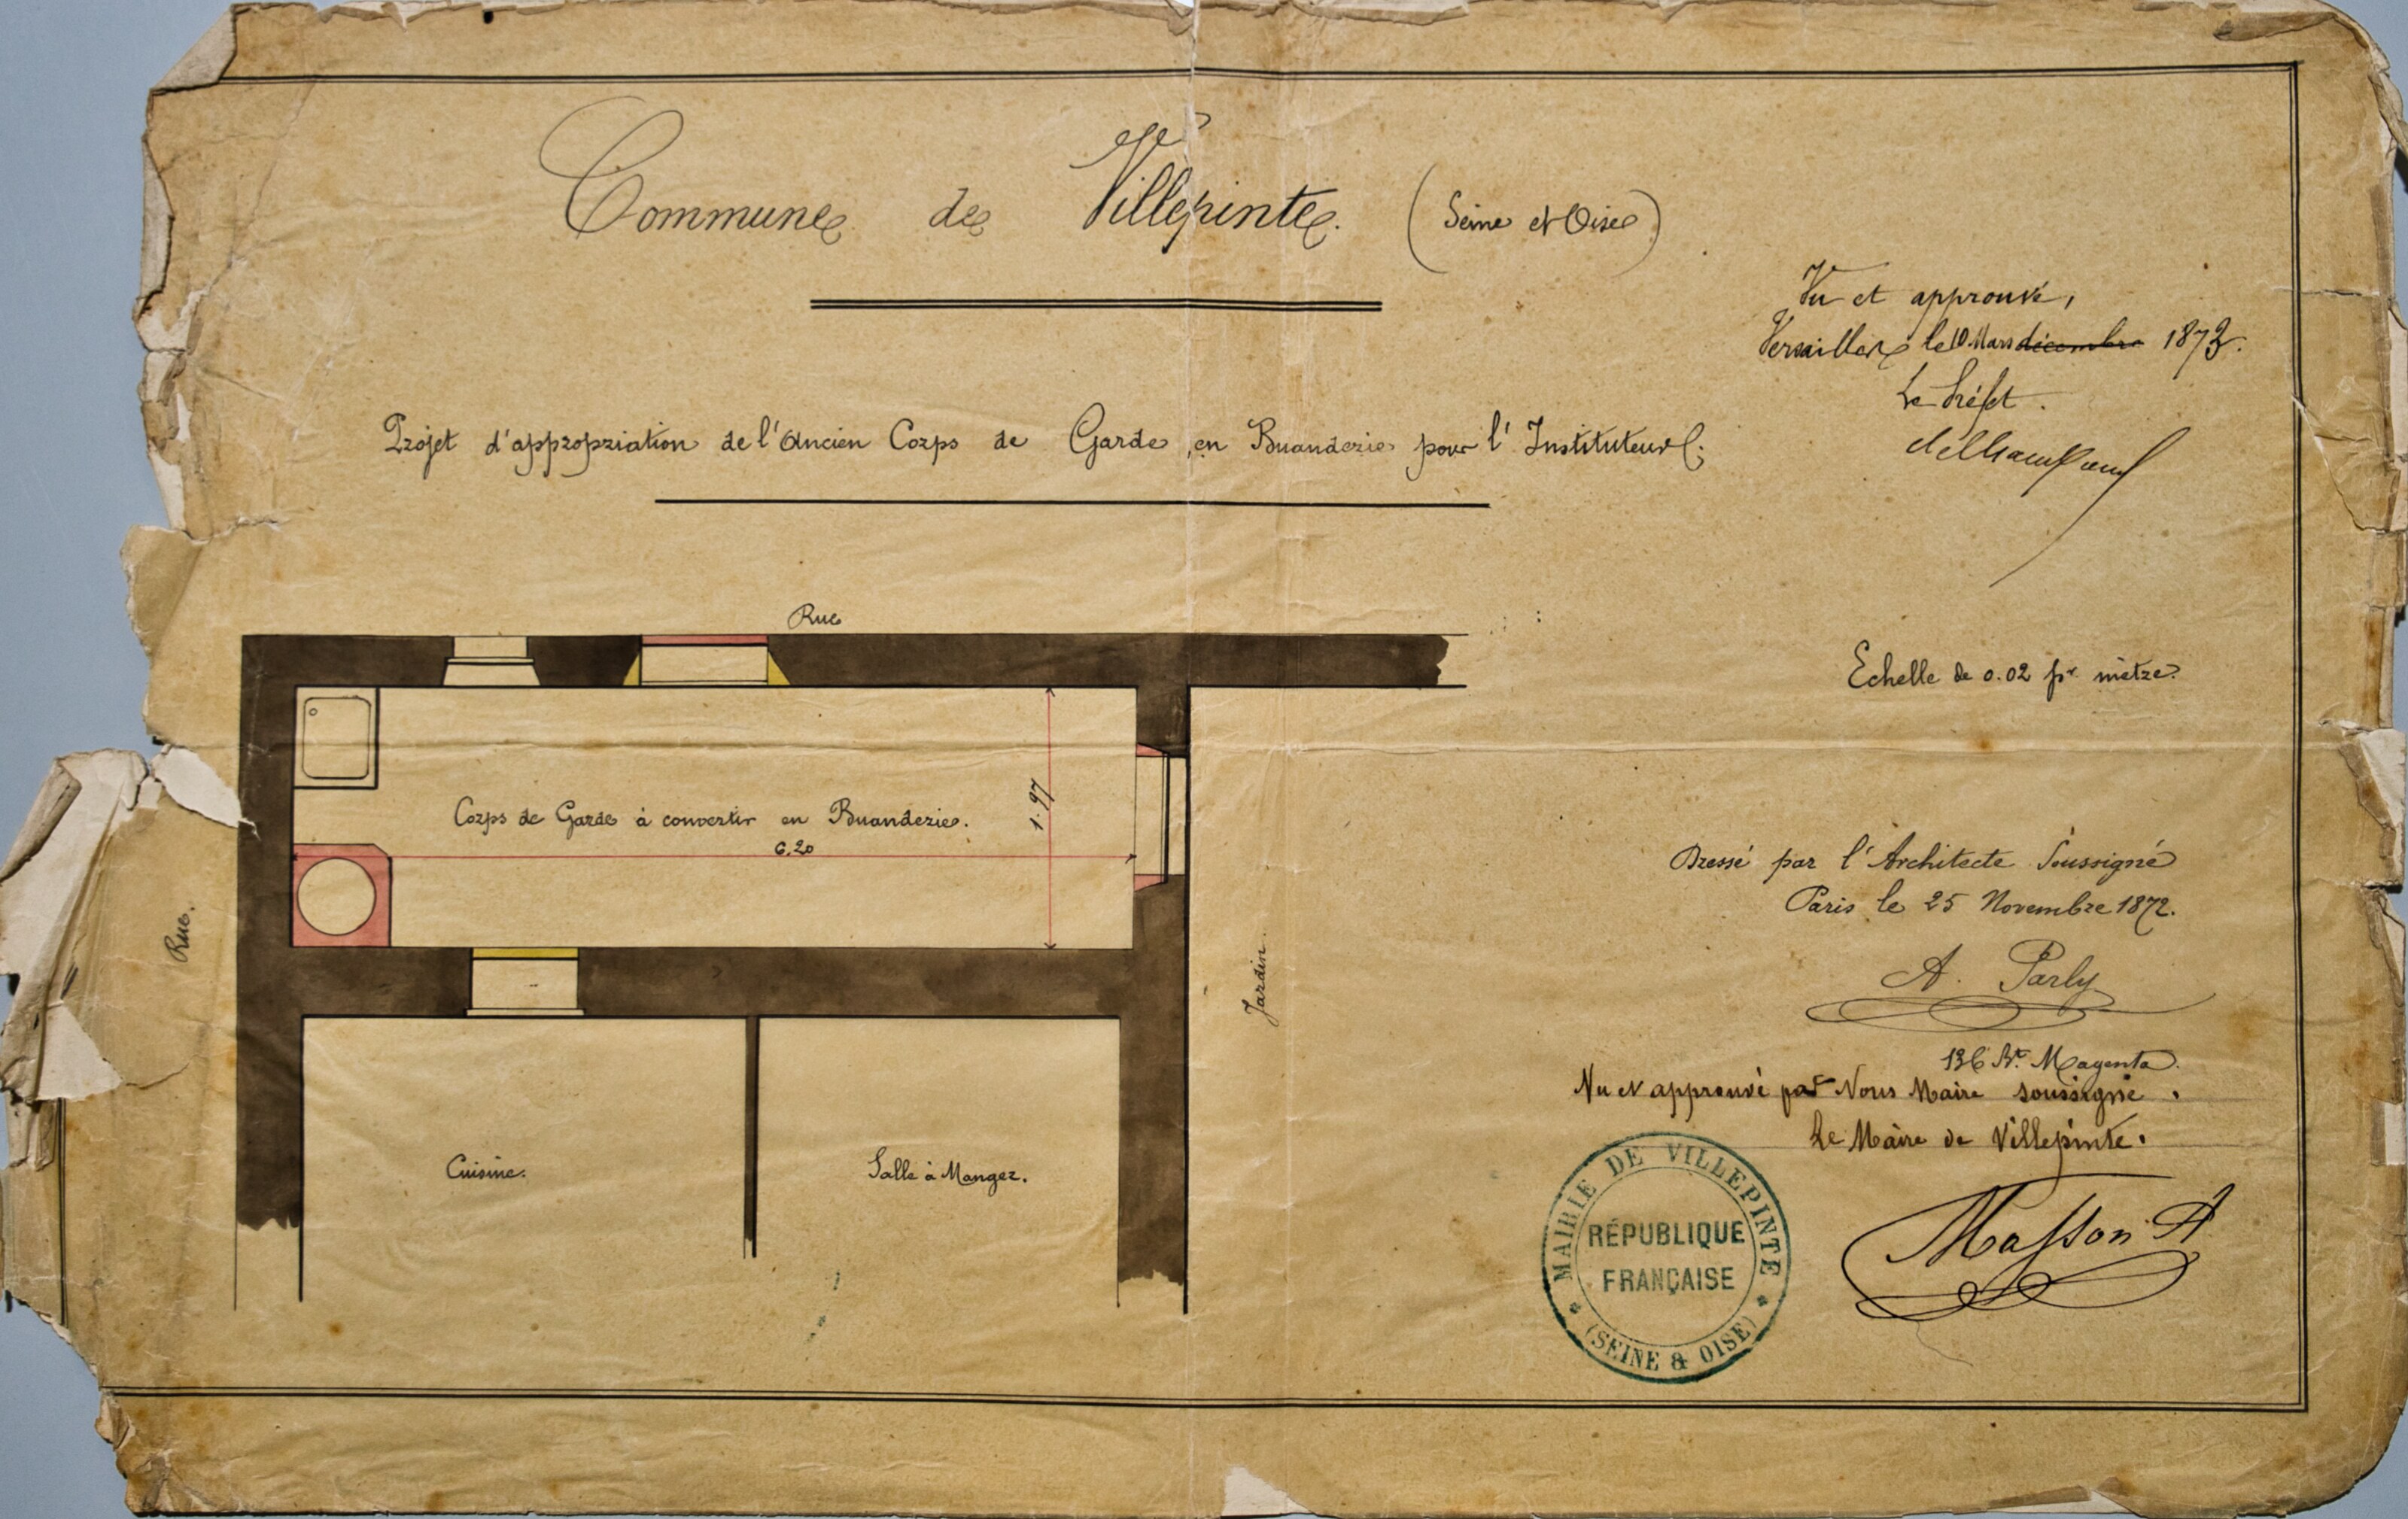 Commune de Villepinte. (Seine et Oise)
Vu et approuvé,
Versailles le 10 Mars décembre 1873.
Le Préfet.
Projet d'appropriation de l'Ancien Corps de Garde, en Buanderie pour l'Instituteur.
Rue
Echelle de 0.02 pr mètre.
Corps de Garde à convertir en Buanderie.
6.20
1.97
Rue.
Jardin.
Cuisine.
Salle à Manger.
Dressé par l'Architecte Soussigné
Paris le 25 Novembre 1872.
A. Parly
136 Bt. Magenta.
Vu et approuvé par Nous Maire soussigné.
Le Maire de Villepinte.
Masson A
MAIRIE DE VILLEPINTE
RÉPUBLIQUE
FRANÇAISE
(SEINE & OISE)